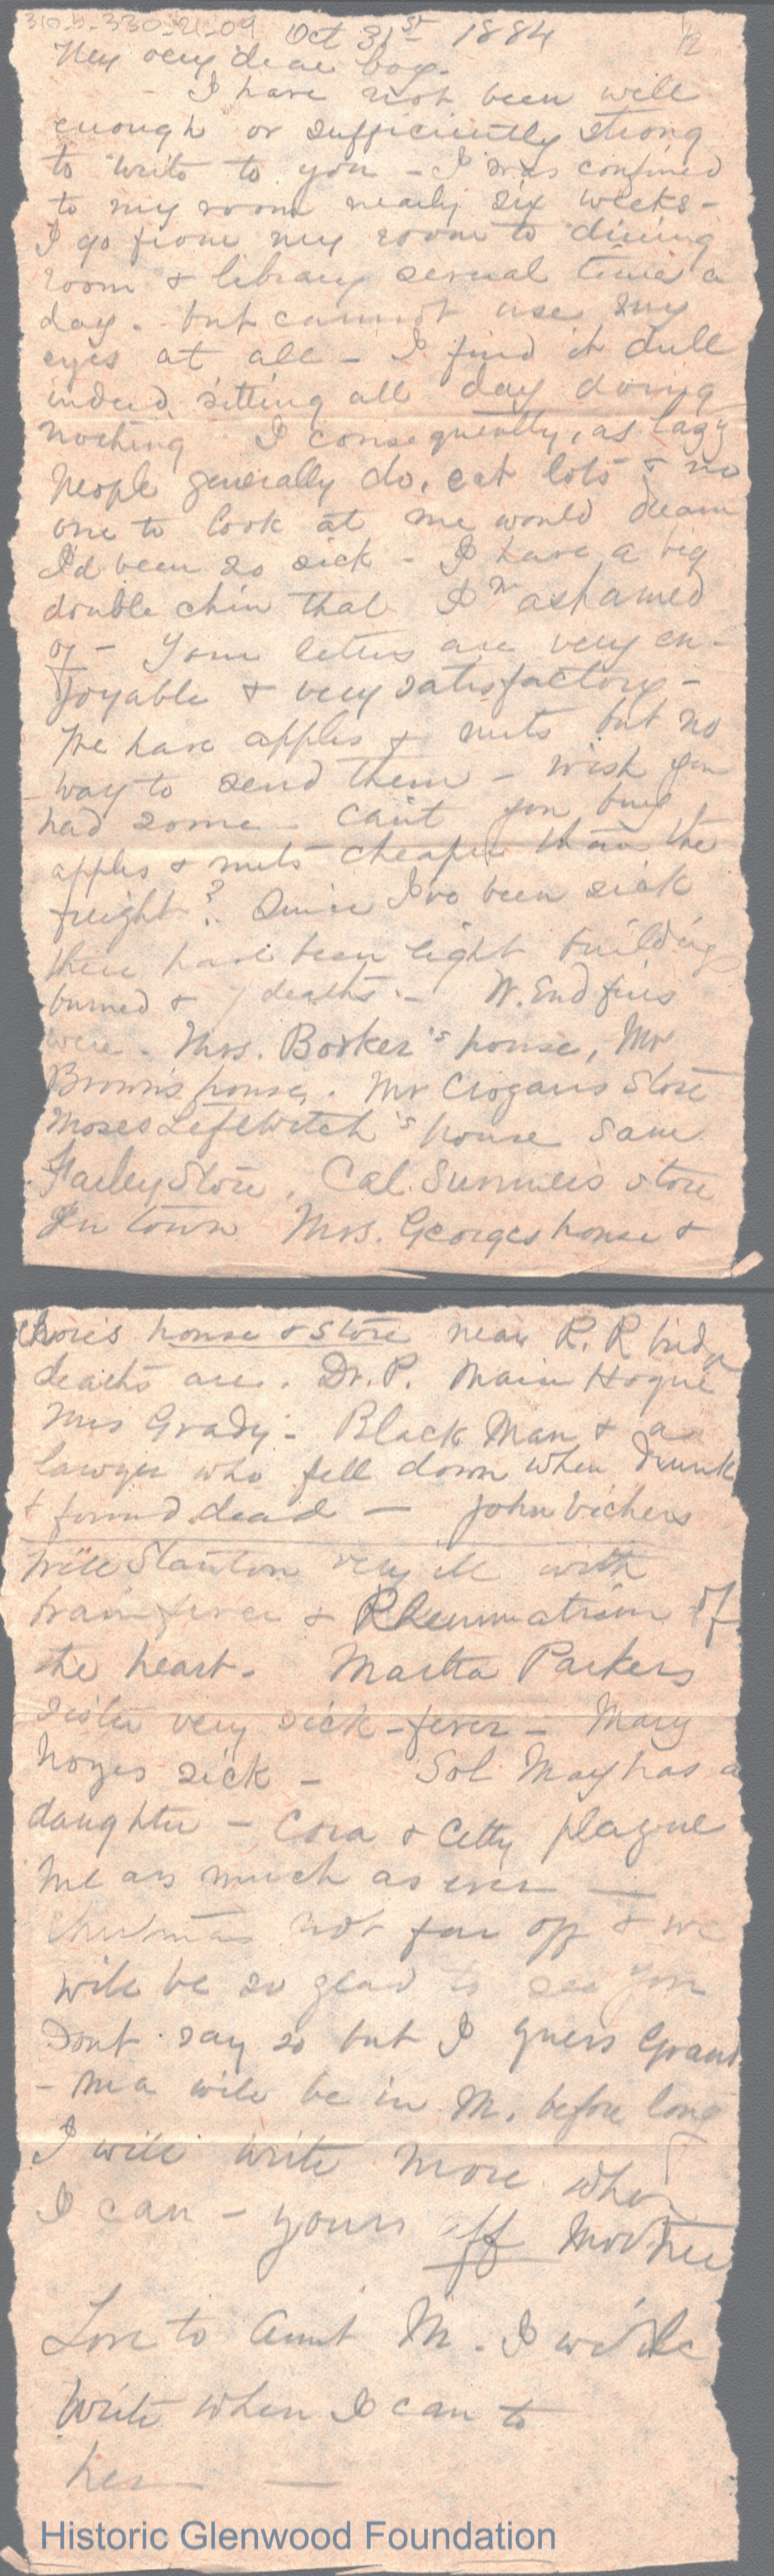 310-5-330-21-09 Oct 31st 1884 1/2
My very dear boy.
- I have not been well
enough or sufficiently strong
to write to you - I was confined
to my room nearly six weeks -
I go from my room to dining
room & library several time a
day. but cannot use my
eyes at all - I find it dull
indeed sitting all day doing
nothing I consequently, as lazy
people generally do, eat lots & no
one to look at me would dream
I'd been so sick - I have a big
double chin that I'm ashamed
of - Your letters are very en-
joyable & very satisfactory -
We have apples & nuts but no
way to send them - wish you
had some - can't you buy
apples & nuts cheaper than the
freight? Since I've been sick
there have been eight buildings
burned & 7 deaths - W. End fires
were. Mrs. Booker's house, Mr
Brown's house. Mr Crogans Store
Moses Leftwitch's house Sam
Farley Store, Cal. Summers store
In town Mrs. Georges house &
house & store near R. R bridg
deaths are. Dr. P. Main Hogue
Mrs Grady - Black Man & a
lawyer who fell down when drunk
& found dead - John Vickers
Will Stanton very ill with
brain fever & Rheumatism of
the heart. Martha Parkers
sister very sick - fever - Mary
Noyes sick - Sol May has a
daughter - Cora & Letty plague
me as much as ever -
Christmas not far off & we
will be so glad to see you
Dont say so but I guess Grand
- ma will be in M. before long
I will write more when
I can - yours aff Mother
Love to Aunt M. I will
write when I can to
her -
Historic Glenwood Foundation